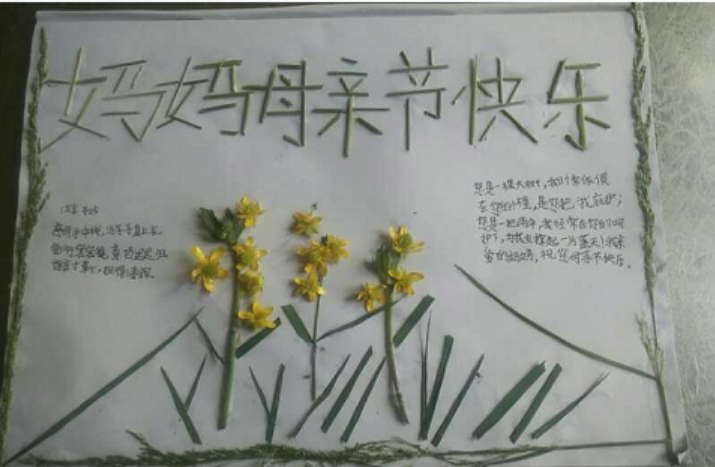 妈妈母亲节快乐
慈母手中线，游子身上衣。
临行密密缝，意恐迟迟归
谁言寸草心，报得三春晖。
您是一棵大树，我时常依偎
在您的怀里，是您把我庇护；
您是一把雨伞，经常在您的呵
护下，为我支撑起一片蓝天！我亲
爱的妈妈，祝您母亲节快乐。